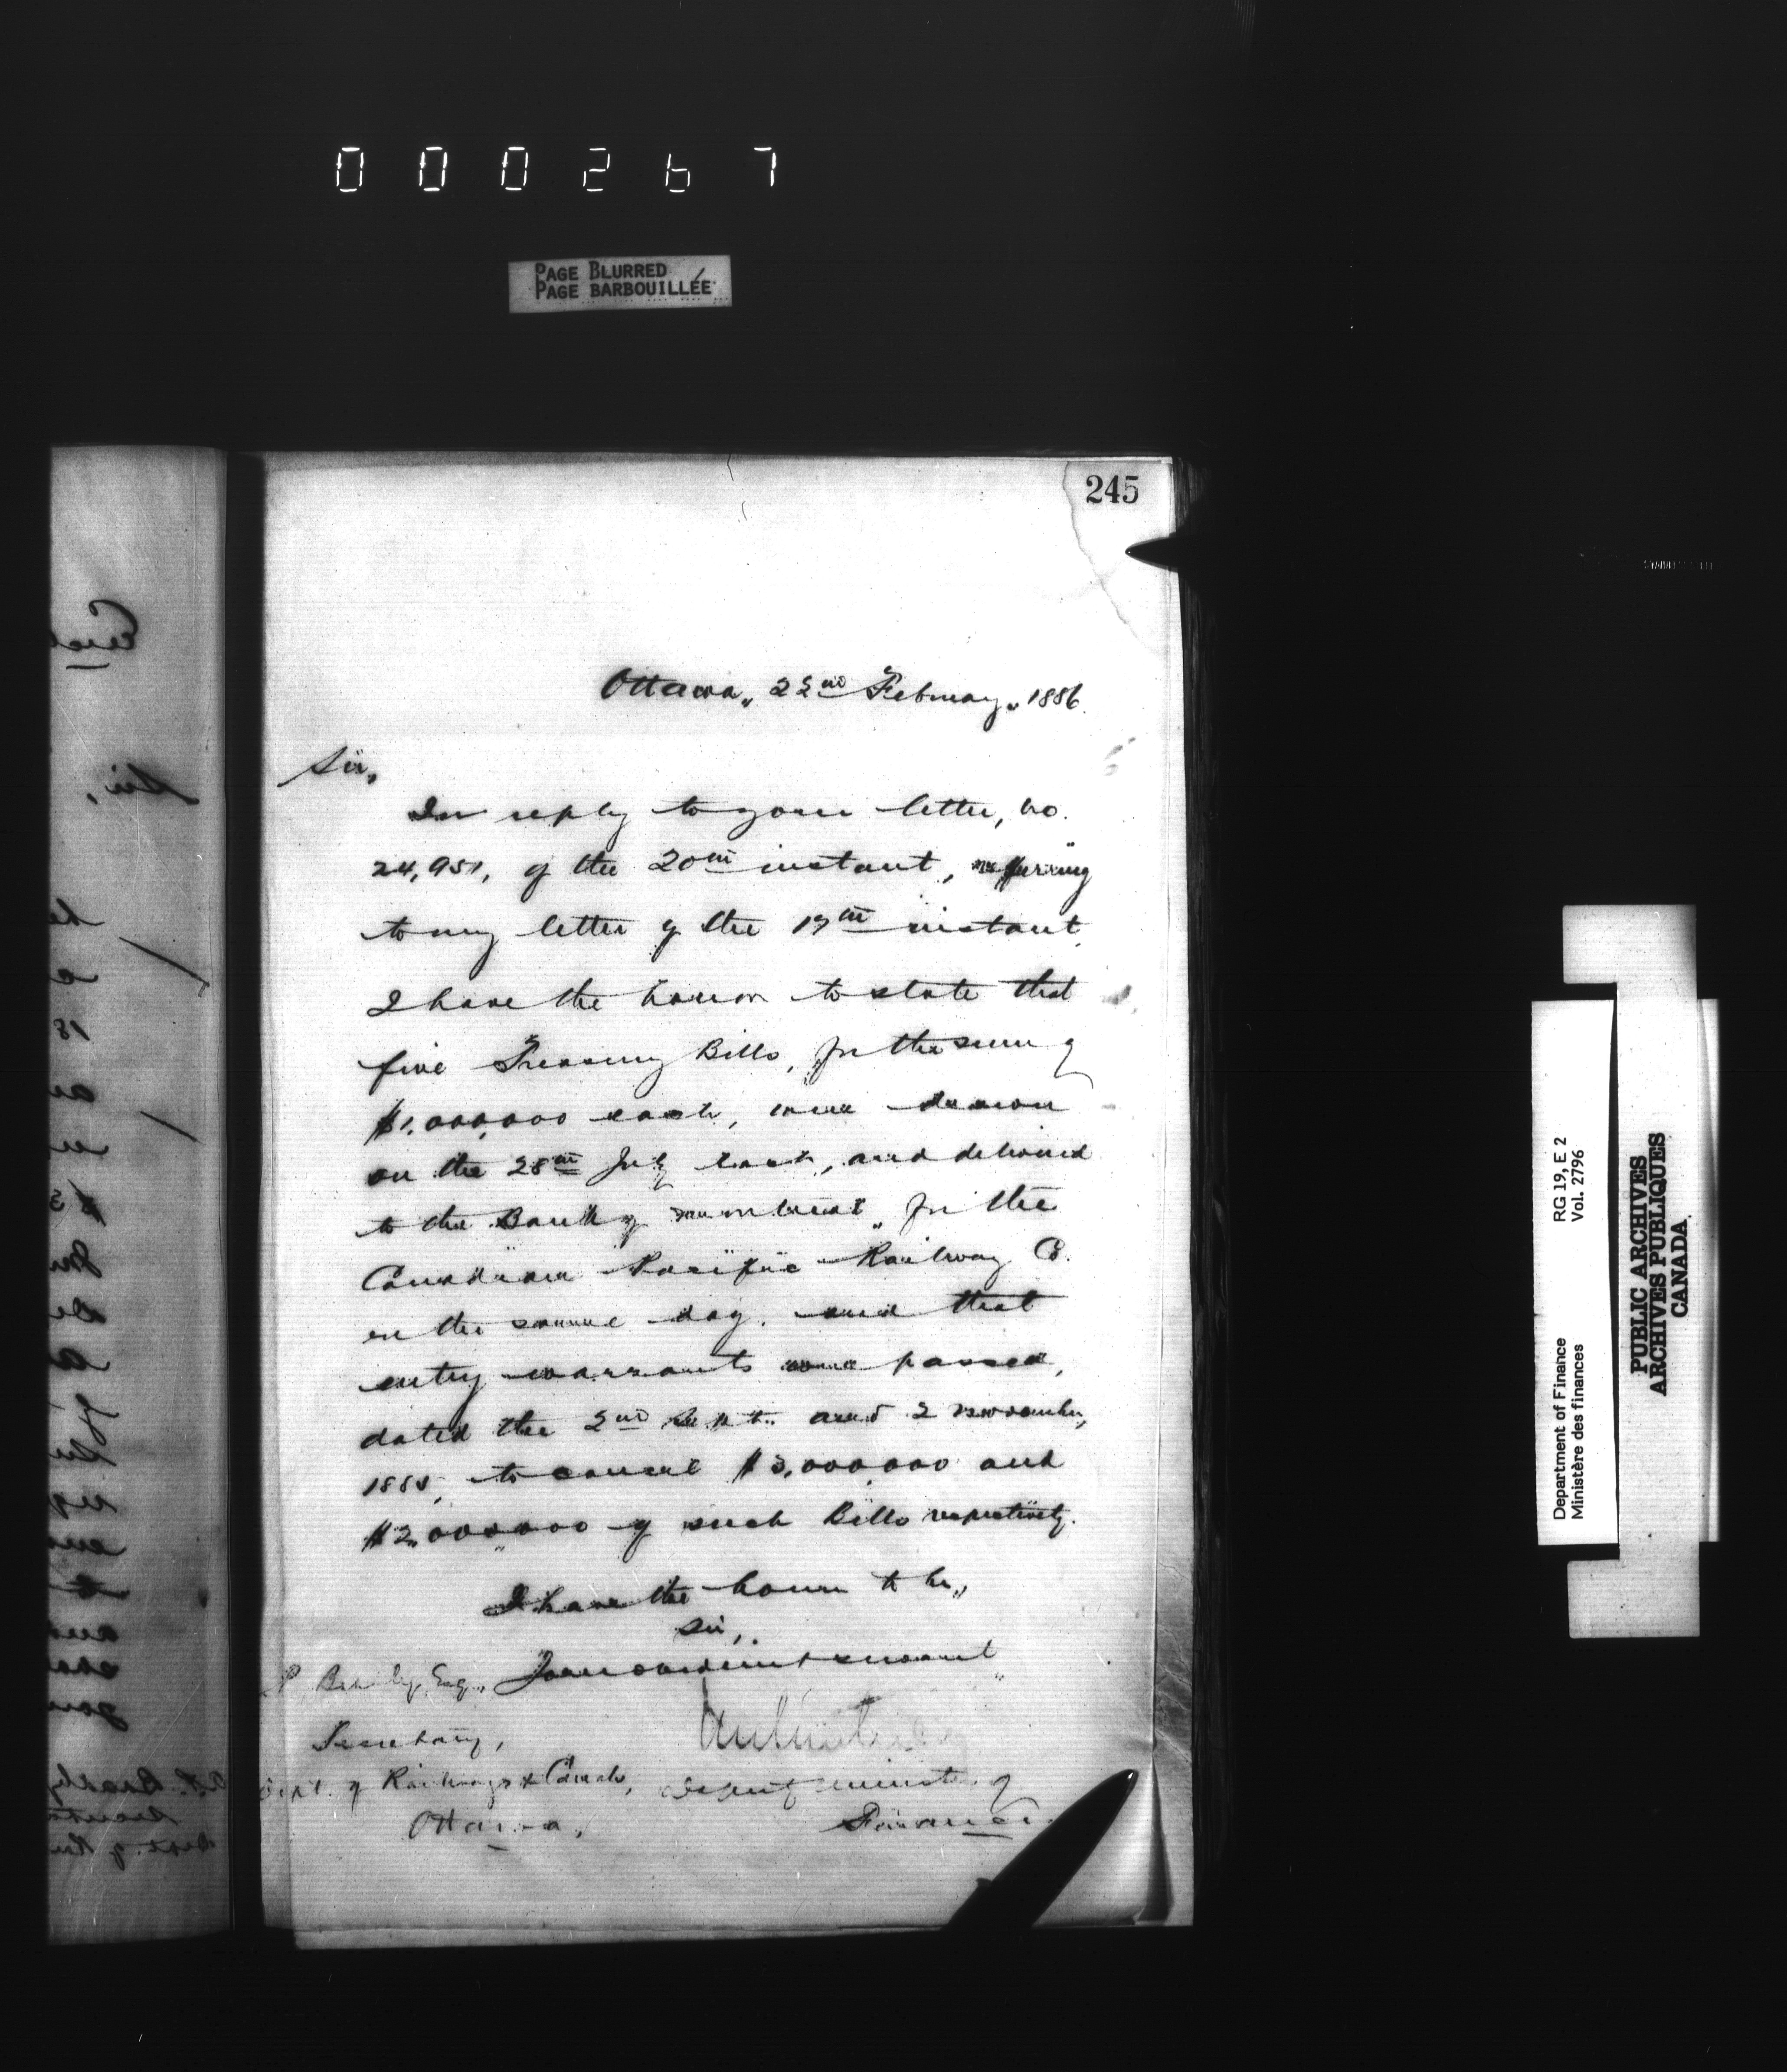 000267
PAGE BLURRED
PAGE BARBOUILLÉE
245
Ottawa, 22nd February, 1886.
Sir,
In reply to your letter, No.
24,951, of the 20th instant, referring
to my letter of the 17th instant,
I have the honor to state that
five Treasury Bills, for the sum of
$1,000,000 each, were drawn
on the 28th July last, and delivered
to the Bank of Montreal, for the
Canadian Pacific Railway Co.
on the same day, and that
entry warrants were passed,
dated the 2nd Sept. and 2 November,
1885, to cancel $3,000,000 and
$2,000,000 of such Bills respectively.
I have the honor to be,
Sir,
Your obedient servant
Bradley, Esq.,
Secretary,
Dept. of Railways & Canals,
Ottawa,
Deputy Minister of
Finance.
Department of Finance
Ministère des finances
RG 19, E 2
Vol. 2796
PUBLIC ARCHIVES
ARCHIVES PUBLIQUES
CANADA